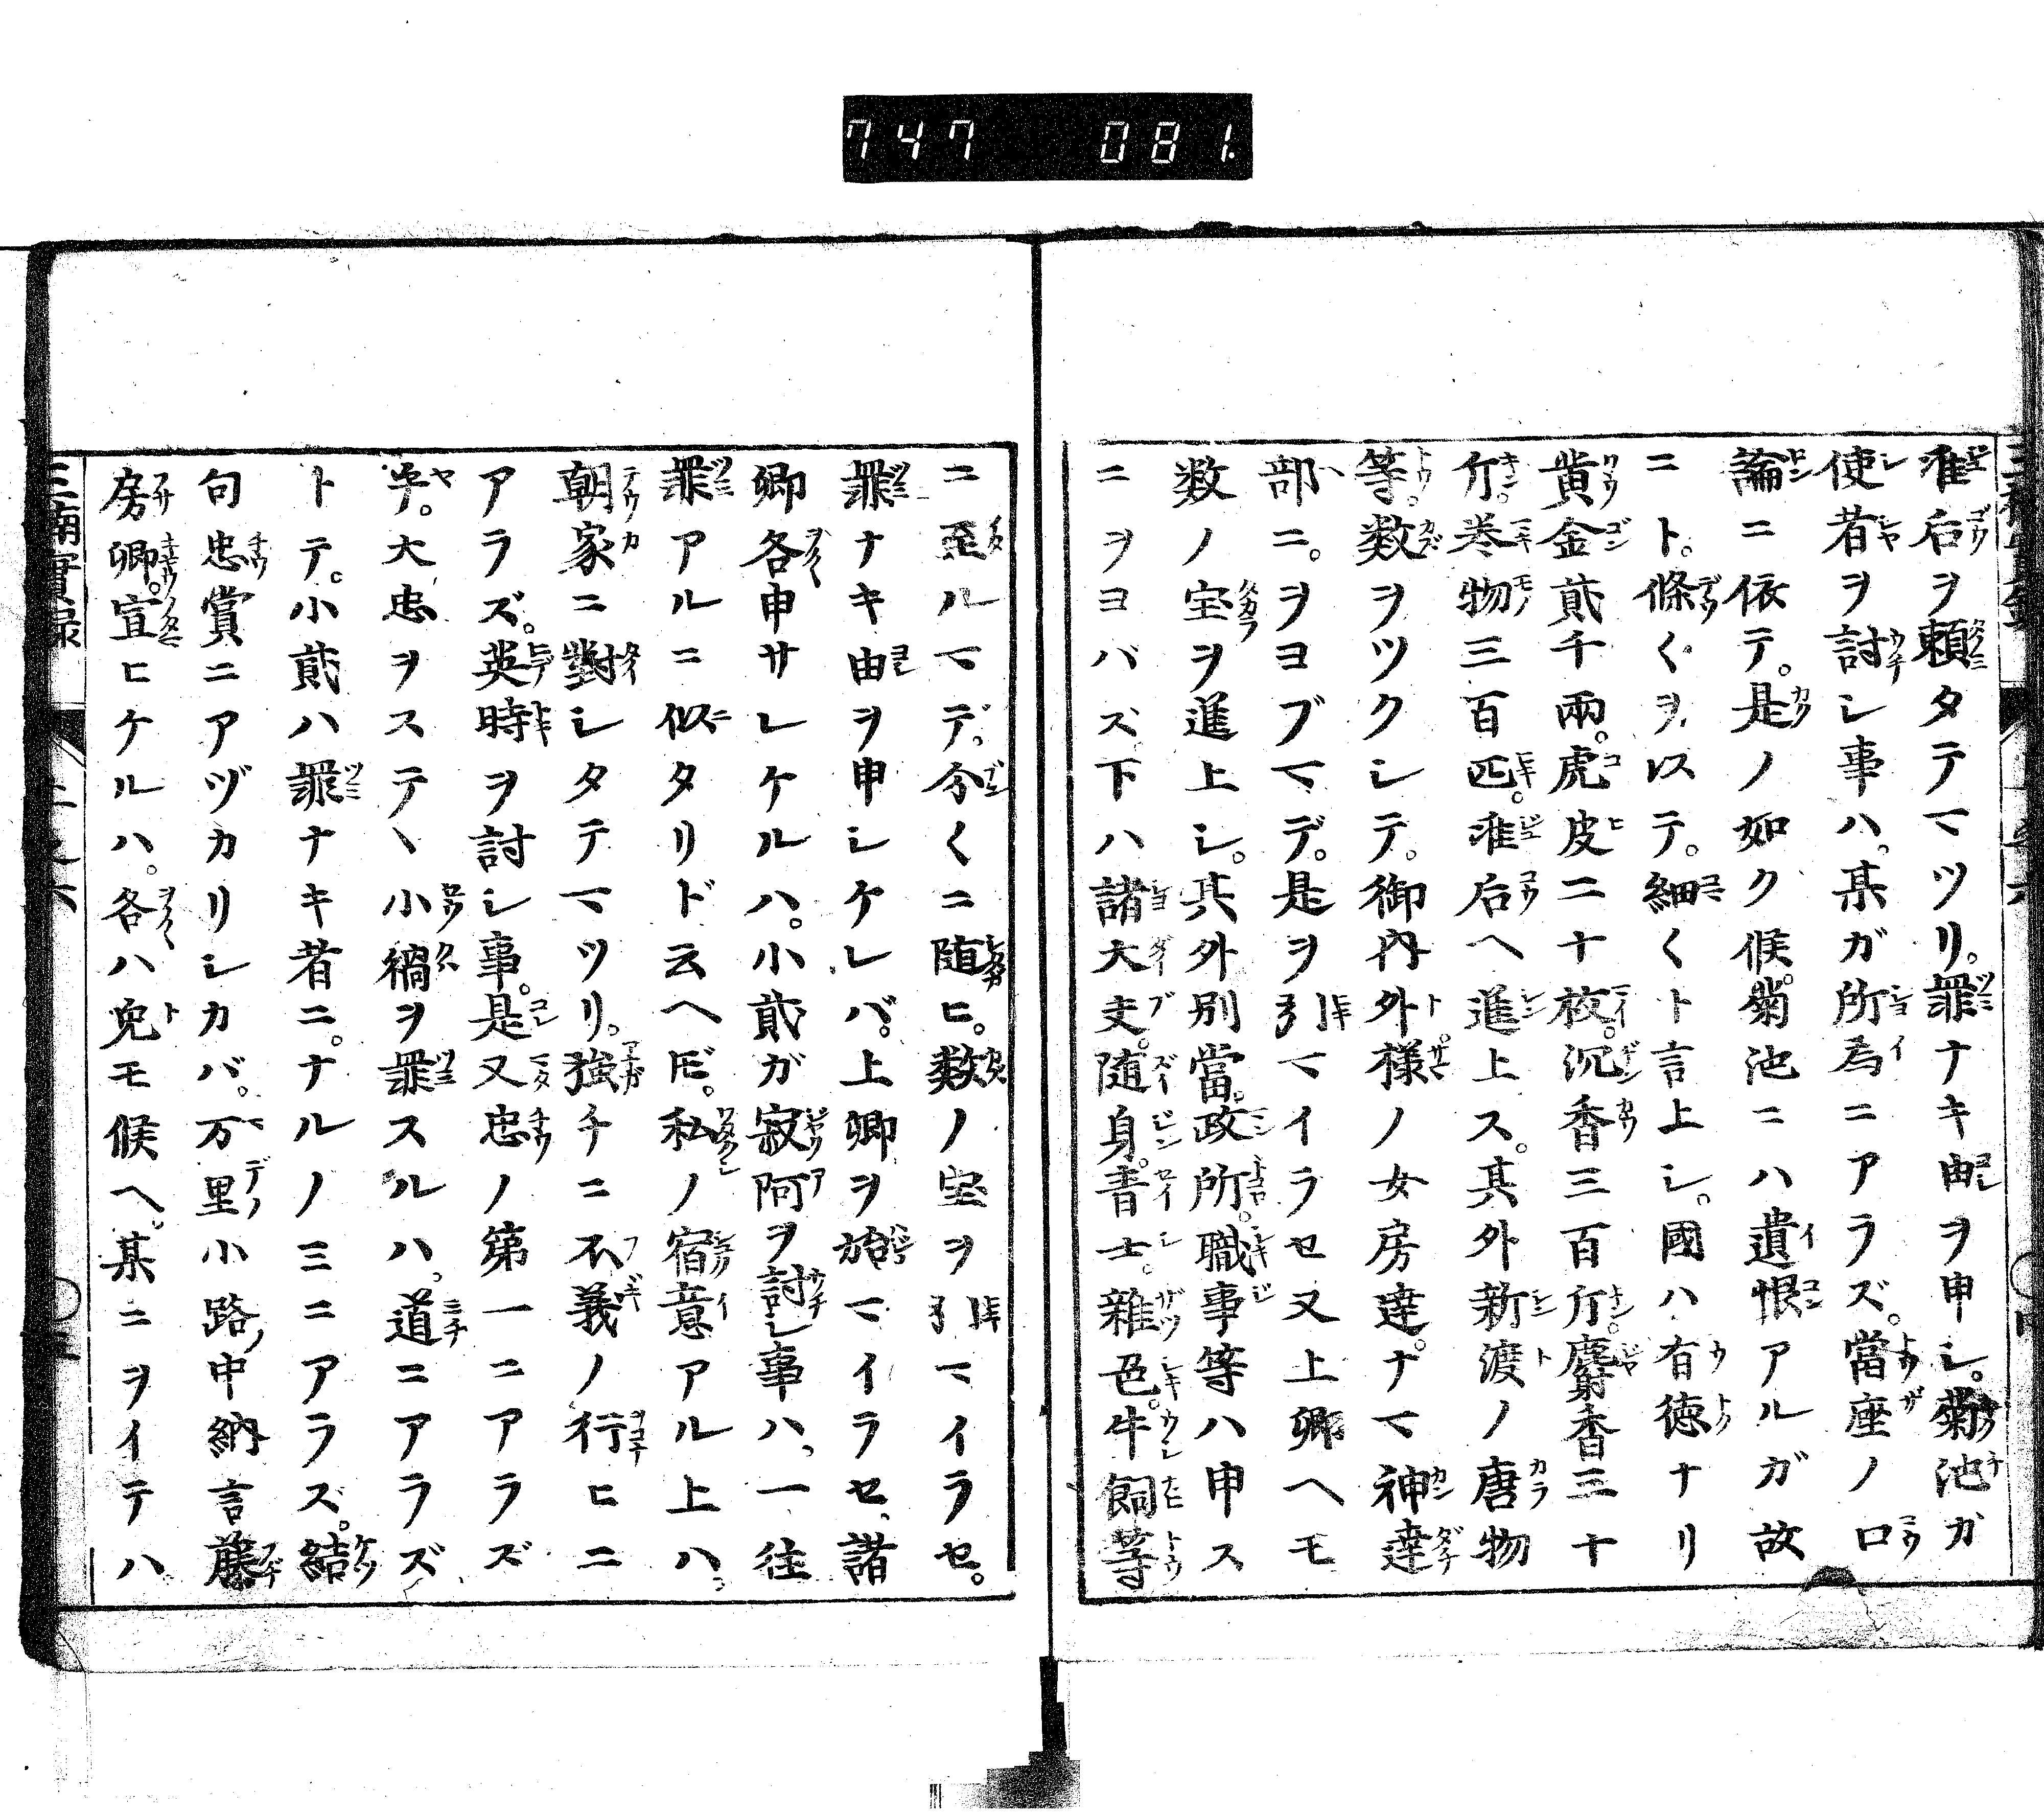 747 081.
准后ヲ頼タテマツリ。罪ナキ由ヲ申シ。菊池ガ
使者ヲ討シ事ハ。某ガ所為ニアラズ。當座ノ口
論ニ依テ。是ノ如ク候。菊池ニハ遺恨アルガ故
ニト。條〱ヲ以テ。細〱ト言上シ。國ハ有徳ナリ
黄金貳千兩。虎皮二十枚。沉香三百斤。麝香三十
斤。巻物三百匹。准后ヘ進上ス。其外新渡ノ唐物
等。数ヲツクシテ。御内外様ノ女房達。ナマ神達
部ニ。ヲヨブマデ。是ヲ引マイラセ又上卿ヘモ
数ノ宝ヲ進上シ。其外別當。政所。職事等ハ申ス
ニヲヨバズ下ハ諸大夫。随身。青士。雑色。牛飼等
ニ至ルマデ。分〱ニ随ヒ。数ノ宝ヲ引マイラセ。
罪ナキ由ヲ申シケレバ。上卿ヲ始マイラセ、諸
卿各申サレケルハ。小貳ガ寂阿ヲ討シ事ハ。一往
罪アルニ似タリド云ヘ𪜈。私ノ宿意アル上ハ。
朝家ニ對シタテマツリ。強チニ不義ノ行ヒニ
アラズ。英時ヲ討シ事。是又忠ノ第一ニアラズ
乎。大忠ヲステヽ小禍ヲ罪スルハ。道ニアラズ
トテ。小貳ハ罪ナキ者ニ。ナルノミニアラズ。結
句忠賞ニアヅカリシカバ。万里小路ノ中納言藤
房卿。宣ヒケルハ。各ハ兔モ候ヘ。某ニヲイテハ